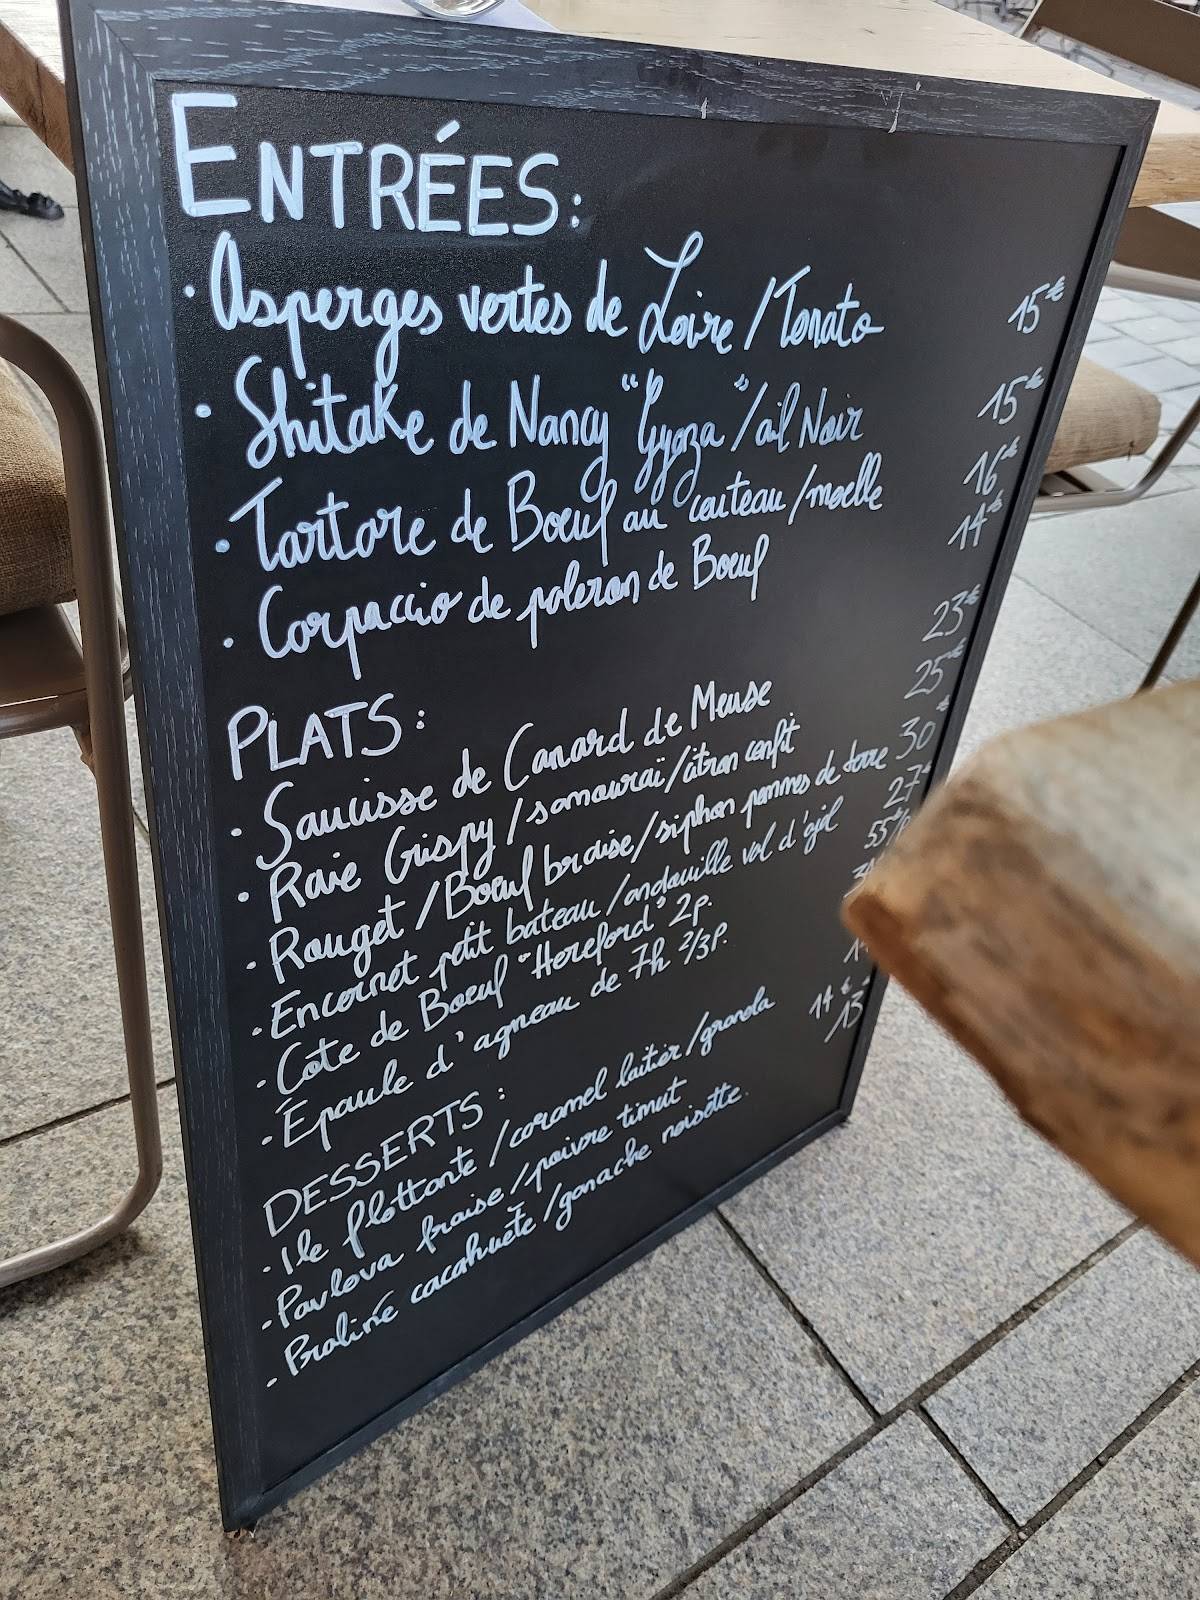 ENTRÉES :
· Asperges vertes de Loire / Tonato 15€
· Shitake de Nancy "Gyoza" / ail Noir 15€
· Tartare de Boeuf au couteau / moelle 16€
· Carpaccio de paleron de Boeuf 14€
PLATS :
· Saucisse de Canard de Meuse 23€
· Raie Crispy / samouraï / citron confit 25€
· Rouget / Boeuf braise / siphon pommes de terre 30€
· Encornet petit bateau / andouille val d'ajol 27€
· Côte de Boeuf "Hereford" 2p. 55
· Épaule d'agneau de 7h 2/3p.
DESSERTS :
· Ile flottante / caramel laitier / granola
· Pavlova fraise / poivre timut 14€
· Praliné cacahuète / ganache noisette. 13